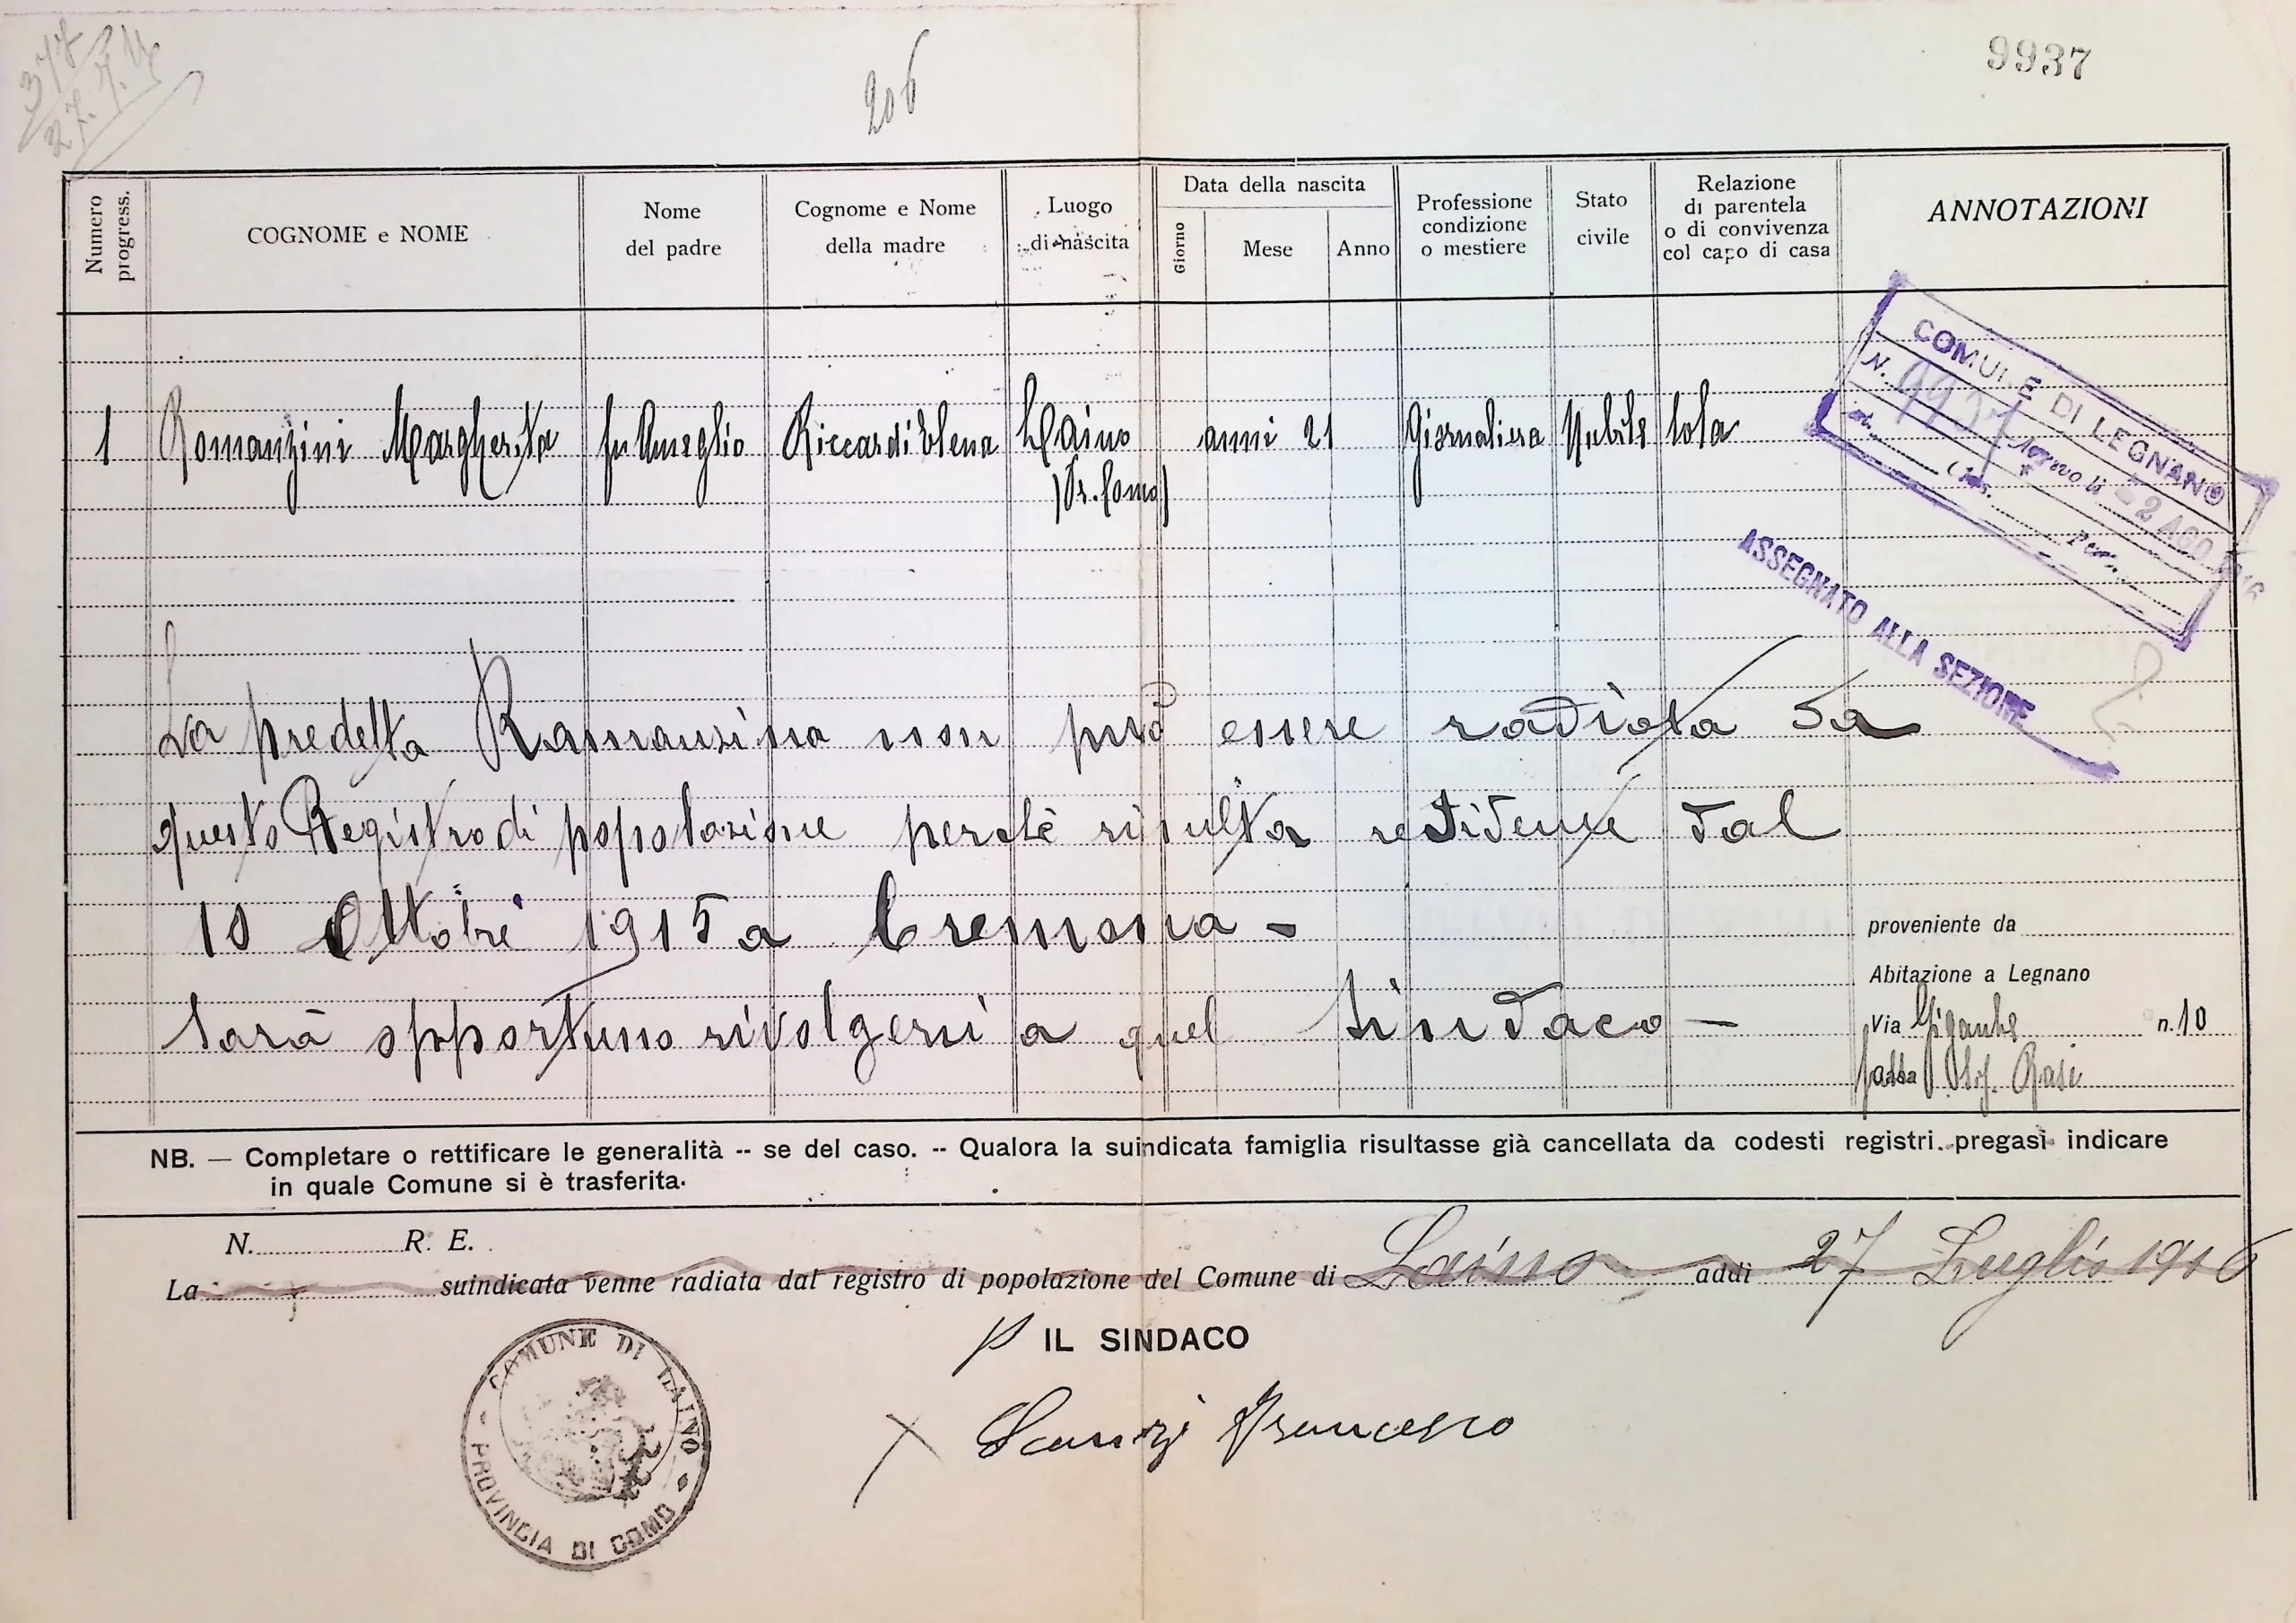 377
27.7.16
206
9937
Numero progress.
COGNOME e NOME
Nome
del padre
Cognome e Nome
della madre
Luogo
di nascita
Data della nascita
Giorno
Mese
Anno
Professione
condizione
o mestiere
Stato
civile
Relazione
di parentela
o di convivenza
col capo di casa
ANNOTAZIONI
1 Romanzini Margherita fu Riccardi Elena Laino anni 21 Giornaliera Nubile sola
(Pr. Como)
COMUNE DI LEGNANO
N. 9937 Arrivo li - 2 AGO 1916
Cat. Clas. Fasc.
ASSEGNATO ALLA SEZIONE
La predetta Romanzina non può essere radiata da
questo Registro di popolazione perchè risulta residente dal
10 Ottobre 1915 a Cremona -
Sarà opportuno rivolgersi a quel Sindaco -
proveniente da
Abitazione a Legnano
Via Gigante n. 10
NB. — Completare o rettificare le generalità -- se del caso. -- Qualora la suindicata famiglia risultasse già cancellata da codesti registri. pregasi indicare
in quale Comune si è trasferita.
N. R. E.
La suindicata venne radiata dal registro di popolazione del Comune di Laino addì 27 Luglio 1916
p IL SINDACO
Francesco
COMUNE DI LAINO
PROVINCIA DI COMO